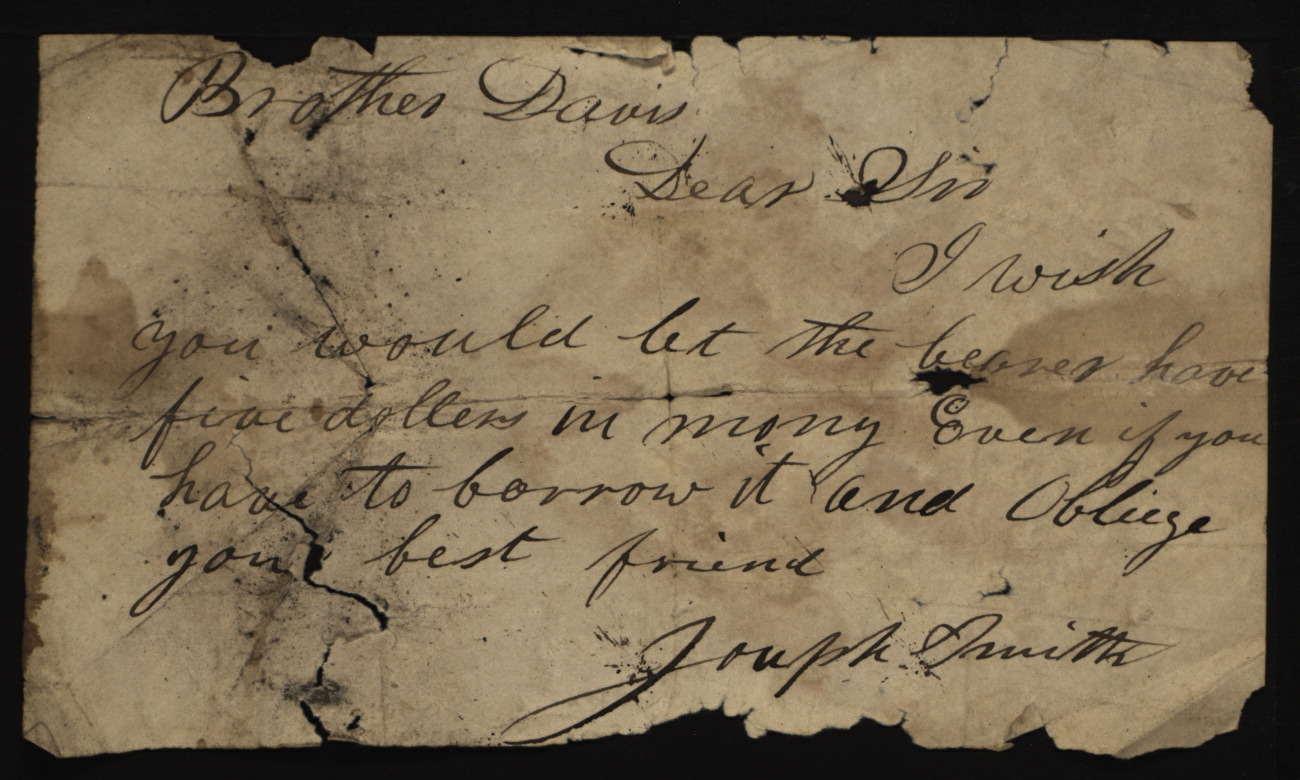 Brother Davis
Dear Sir
I wish
you would let the bearer have
five dollers in mony Even if you
have to borrow it and Obliege
your best friend
Joseph Smith